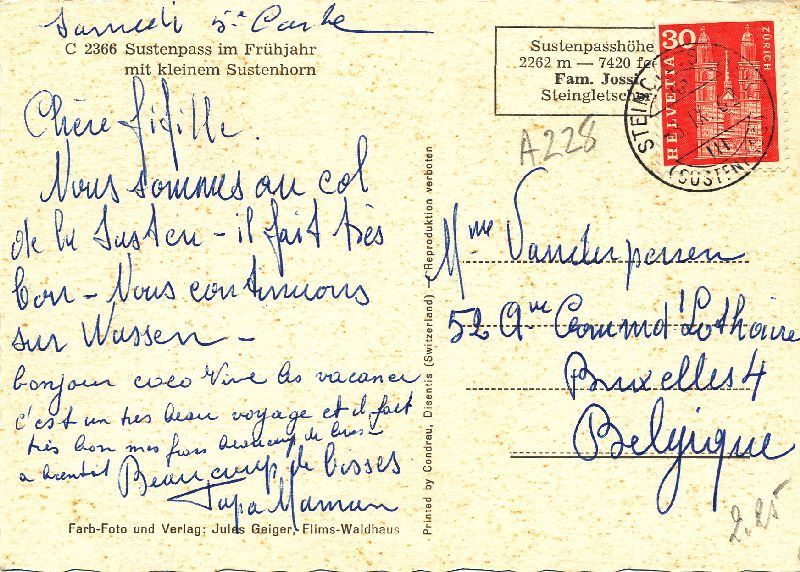 Samedi 5e Carte
C 2366 Sustenpass im Frühjahr
mit kleinem Sustenhorn
Chère fifille.
Nous sommes au col
de la Susten - il fait très
bon - Nous continuons
sur Wassen -
bonjour coco Vive les vacances
c'est un tres beau voyage et il fait
très bon mes beaucoup de
a bientot Beaucoup de bisses
Papa Maman
Farb-Foto und Verlag: Jules Geiger, Flims-Waldhaus
Printed by Condrau, Disentis (Switzerland) - Reproduktion verboten
Sustenpasshöhe
2262 m — 7420 fe
Fam. Jossi
Steingletscher
30
HELVETIA
ZÜRICH
STEING
(SUSTEN
A228
Mme Vanderperren
52 Ave Command' Lothaire
Bruxelles 4
Belgique
2.25